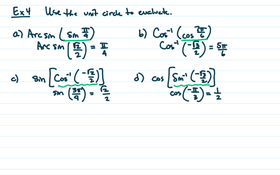 Ex4 Use the unit circle to evaluate.
a) Arcsin (sin π/4)
Arcsin (√2/2) = π/4
b) Cos⁻¹ (cos 7π/6)
Cos⁻¹ (-√3/2) = 5π/6
c) sin [Cos⁻¹ (-√2/2)]
sin (3π/4) = √2/2
d) cos [Sin⁻¹ (-√3/2)]
cos (-π/3) = 1/2